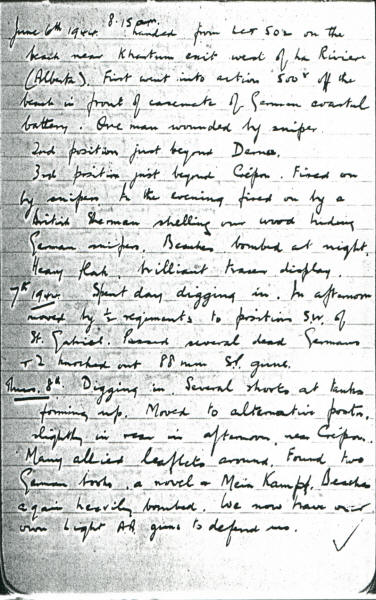 8.15 am.
June 6th 1944. Landed from LCT 502 on the
beach near Khartum exit west of La Riviere
(Alberta). First went into action 500x off the
beach in front of casemate of German coastal
battery. One man wounded by sniper.
2nd position just beyond
3rd position just beyond Crépon. Fired on
by snipers. In the evening fired on by a
British Sherman shelling our wood hiding
German snipers. Beaches bombed at night,
Heavy flak, brilliant tracer display.
7th 1944. Spent day digging in. In afternoon
moved by ½ regiments to position S.W. of
St. Gabriel. Passed several dead Germans
+ 2 knocked out 88 mm S.P. guns.
Thurs. 8th. Digging in. Several shoots at tanks
forming up. Moved to alternative postn.
slightly in rear in afternoon, near Crépon.
Many allied leaflets around. Found two
German books, a novel + Mein Kampf. Beaches
again heavily bombed. We now have our
own Light AA guns to defend us.